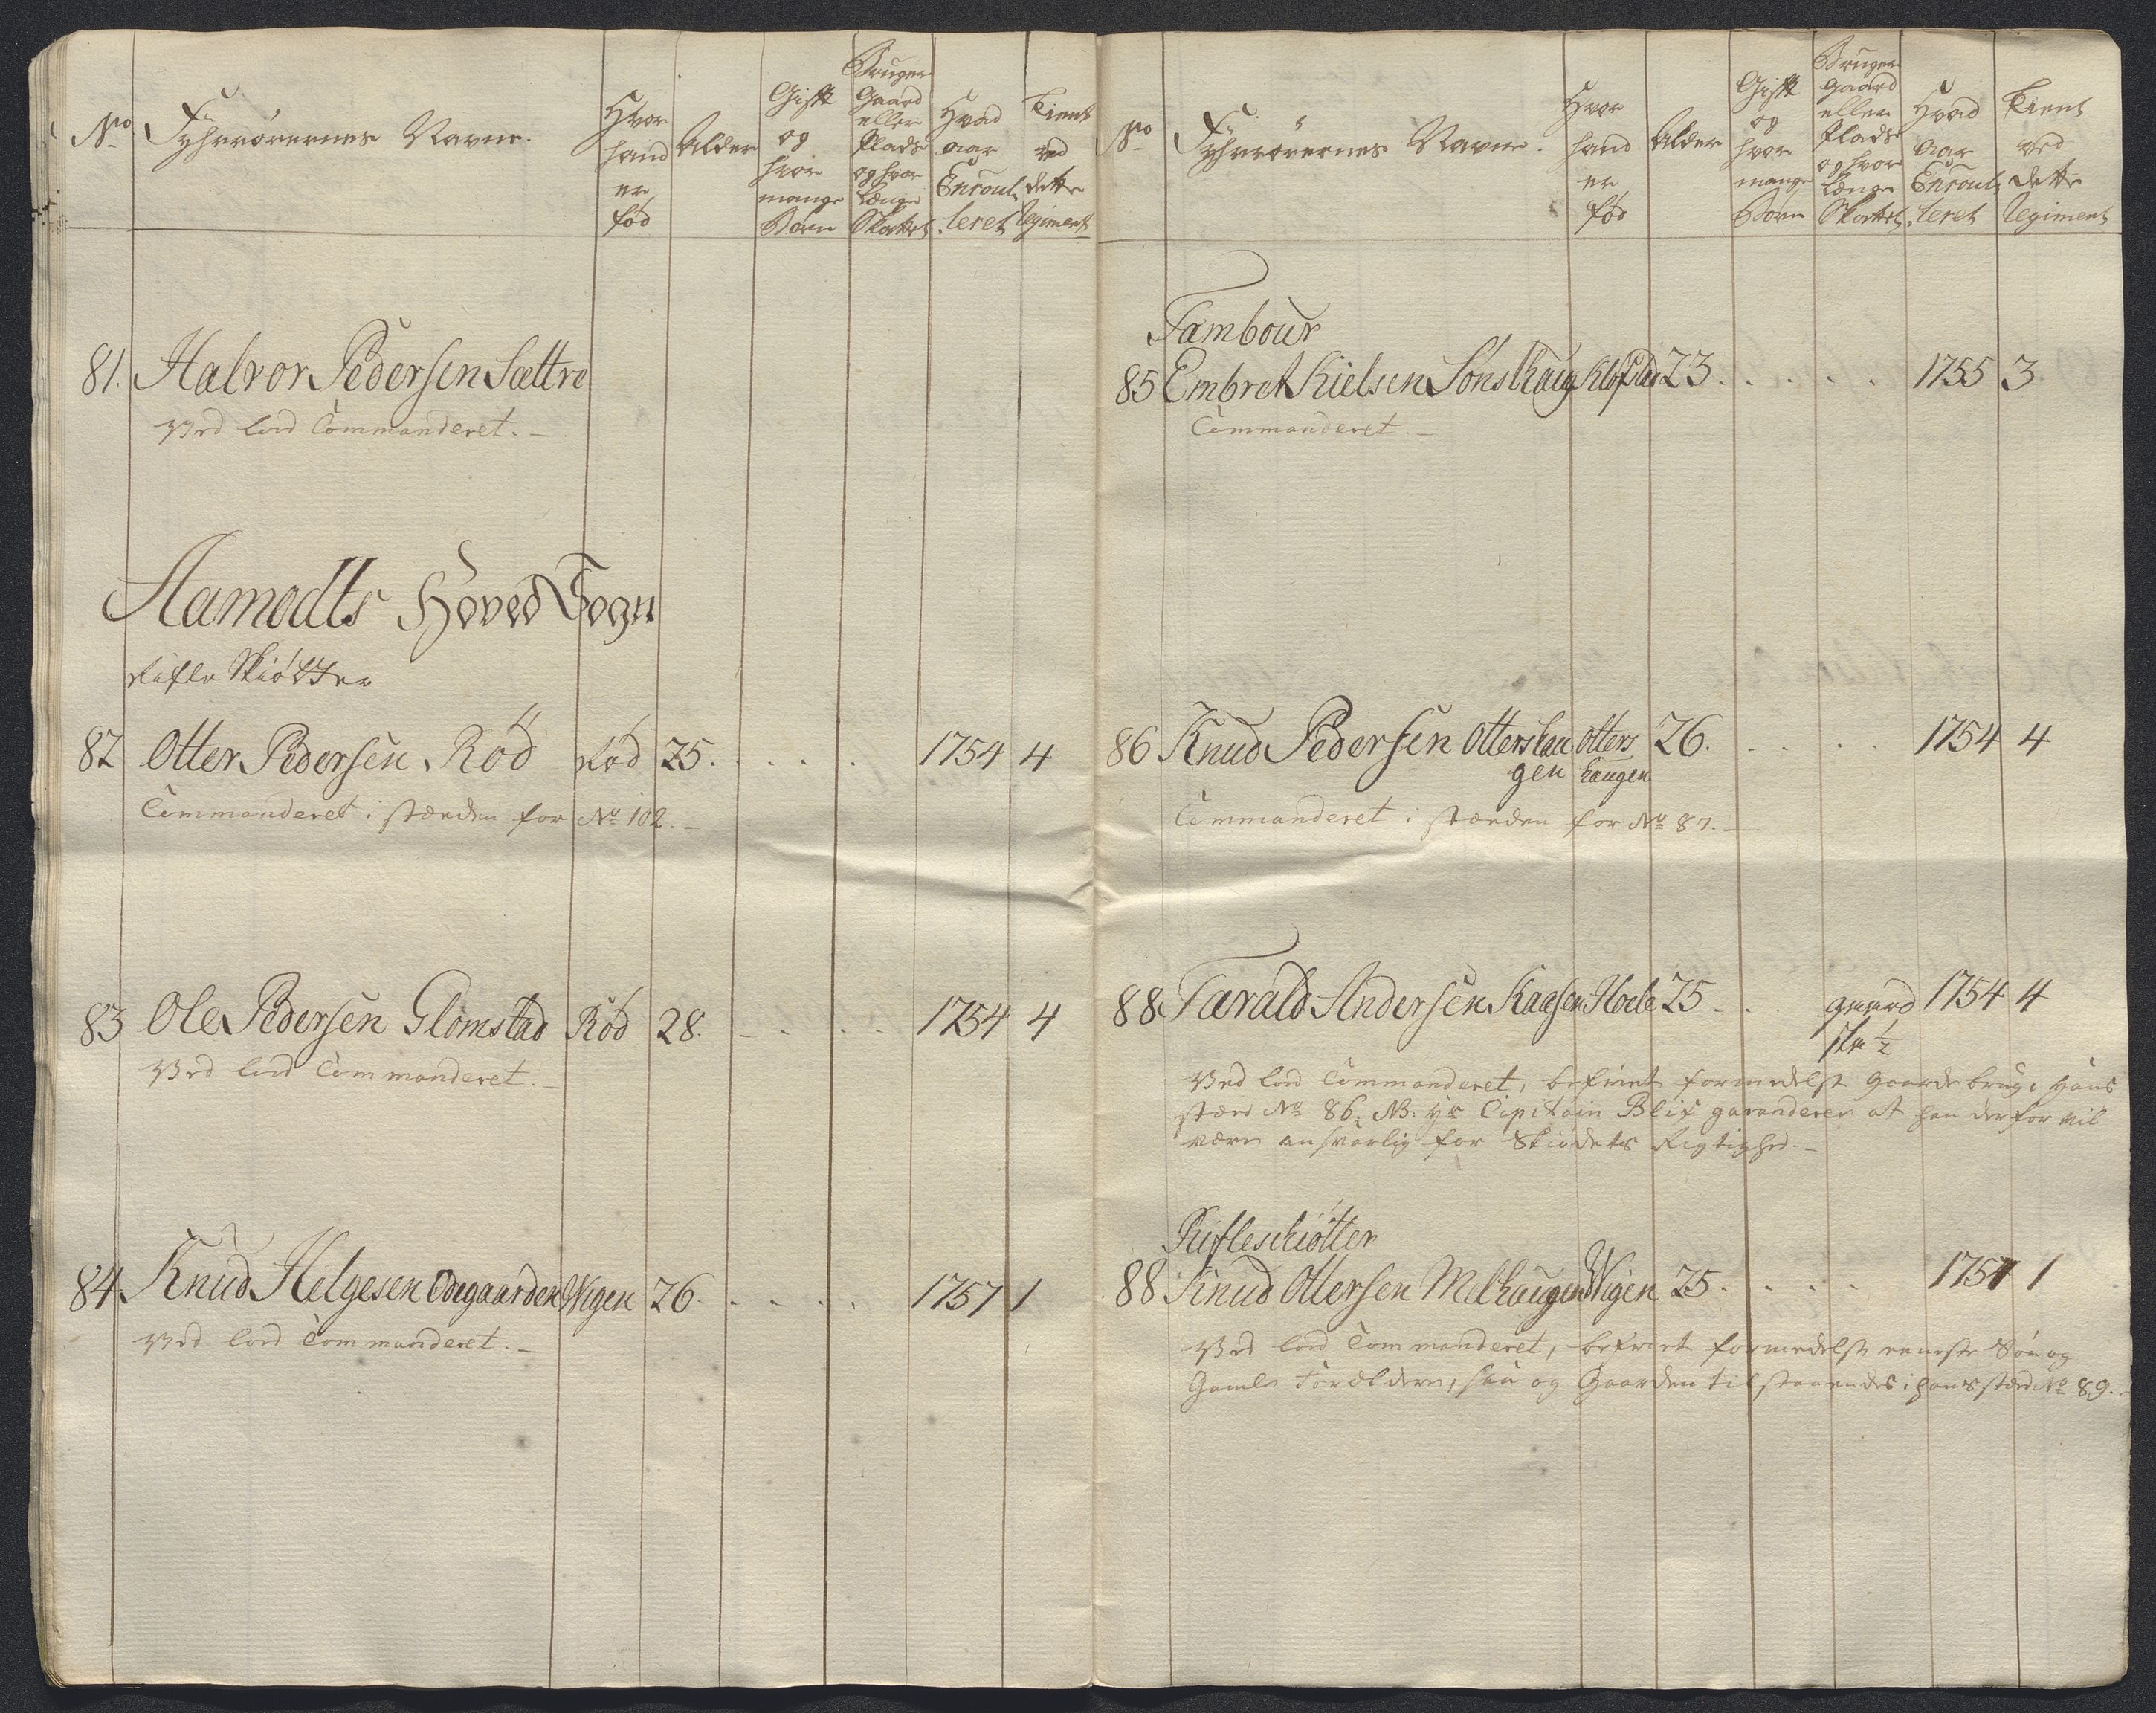 No Fyhrrörernes Navne. Hvor hand er fød Alder Gift og hvor mange Börn Bruger Gaard eller Plads og hvor længe Skattet Hvad aar Enroulleret Tient ved dette Regiment
81. Halvor Pedersen Sættre
Ved lod Commanderet.
Aamodts Hoved Sogn
Rifle Skiötter
82 Otter Pedersen Röd Röd 25. . . . . 1754 4
Commanderet i stæden for No 102.
83 Ole Pedersen Glomstad Röd 28. . . . . 1754 4
Ved lod Commanderet.
84. Knud Helgesen Odegaarden Wigen 26. . . . . 1757 1
Ved lod Commanderet.
No Fyhrrörernes Navne. Hvor hand er fød Alder Gift og hvor mange Börn Bruger gaard eller Plads og hvor længe Skattet Hvad Aar Enroulleret Tient ved dette Regiment
Tambour
85 Embret Kielsen Lönshaug Klofstad 23. . . . . 1755 3
Commanderet.
86 Knud Pedersen Otterstau Otters 26. . . . . 1754 4
gen haugen
Commanderet i stæden for No 87.
88 Tarald Andersen Kaasen Hoele 25 . . . 1754 4
1/2
Ved lod Commanderet, befriet formedelst Gaarde brug, i Hans
stæd No 86. NB. Hr Capitain Blix garanderer at han derfor vil
være ansvarlig for Skiödets Rigtighed.
Rifleschiötter
88 Knud Ottersen Melhaugen Wigen 25. . . . . 1757 1
Ved lod Commanderet, befriet formedelst eeneste Sön og
Gamle Forældere, saa og Gaarden tilstaaendes, i hans stæd No 89.